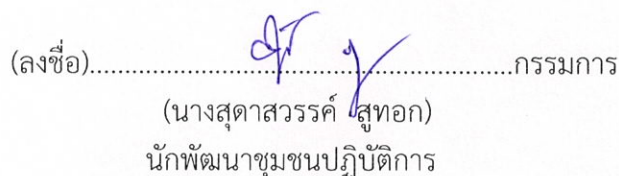 (ลงชื่อ)......................................................กรรมการ
(นางสุดาสวรรค์ สูทอก)
นักพัฒนาชุมชนปฏิบัติการ